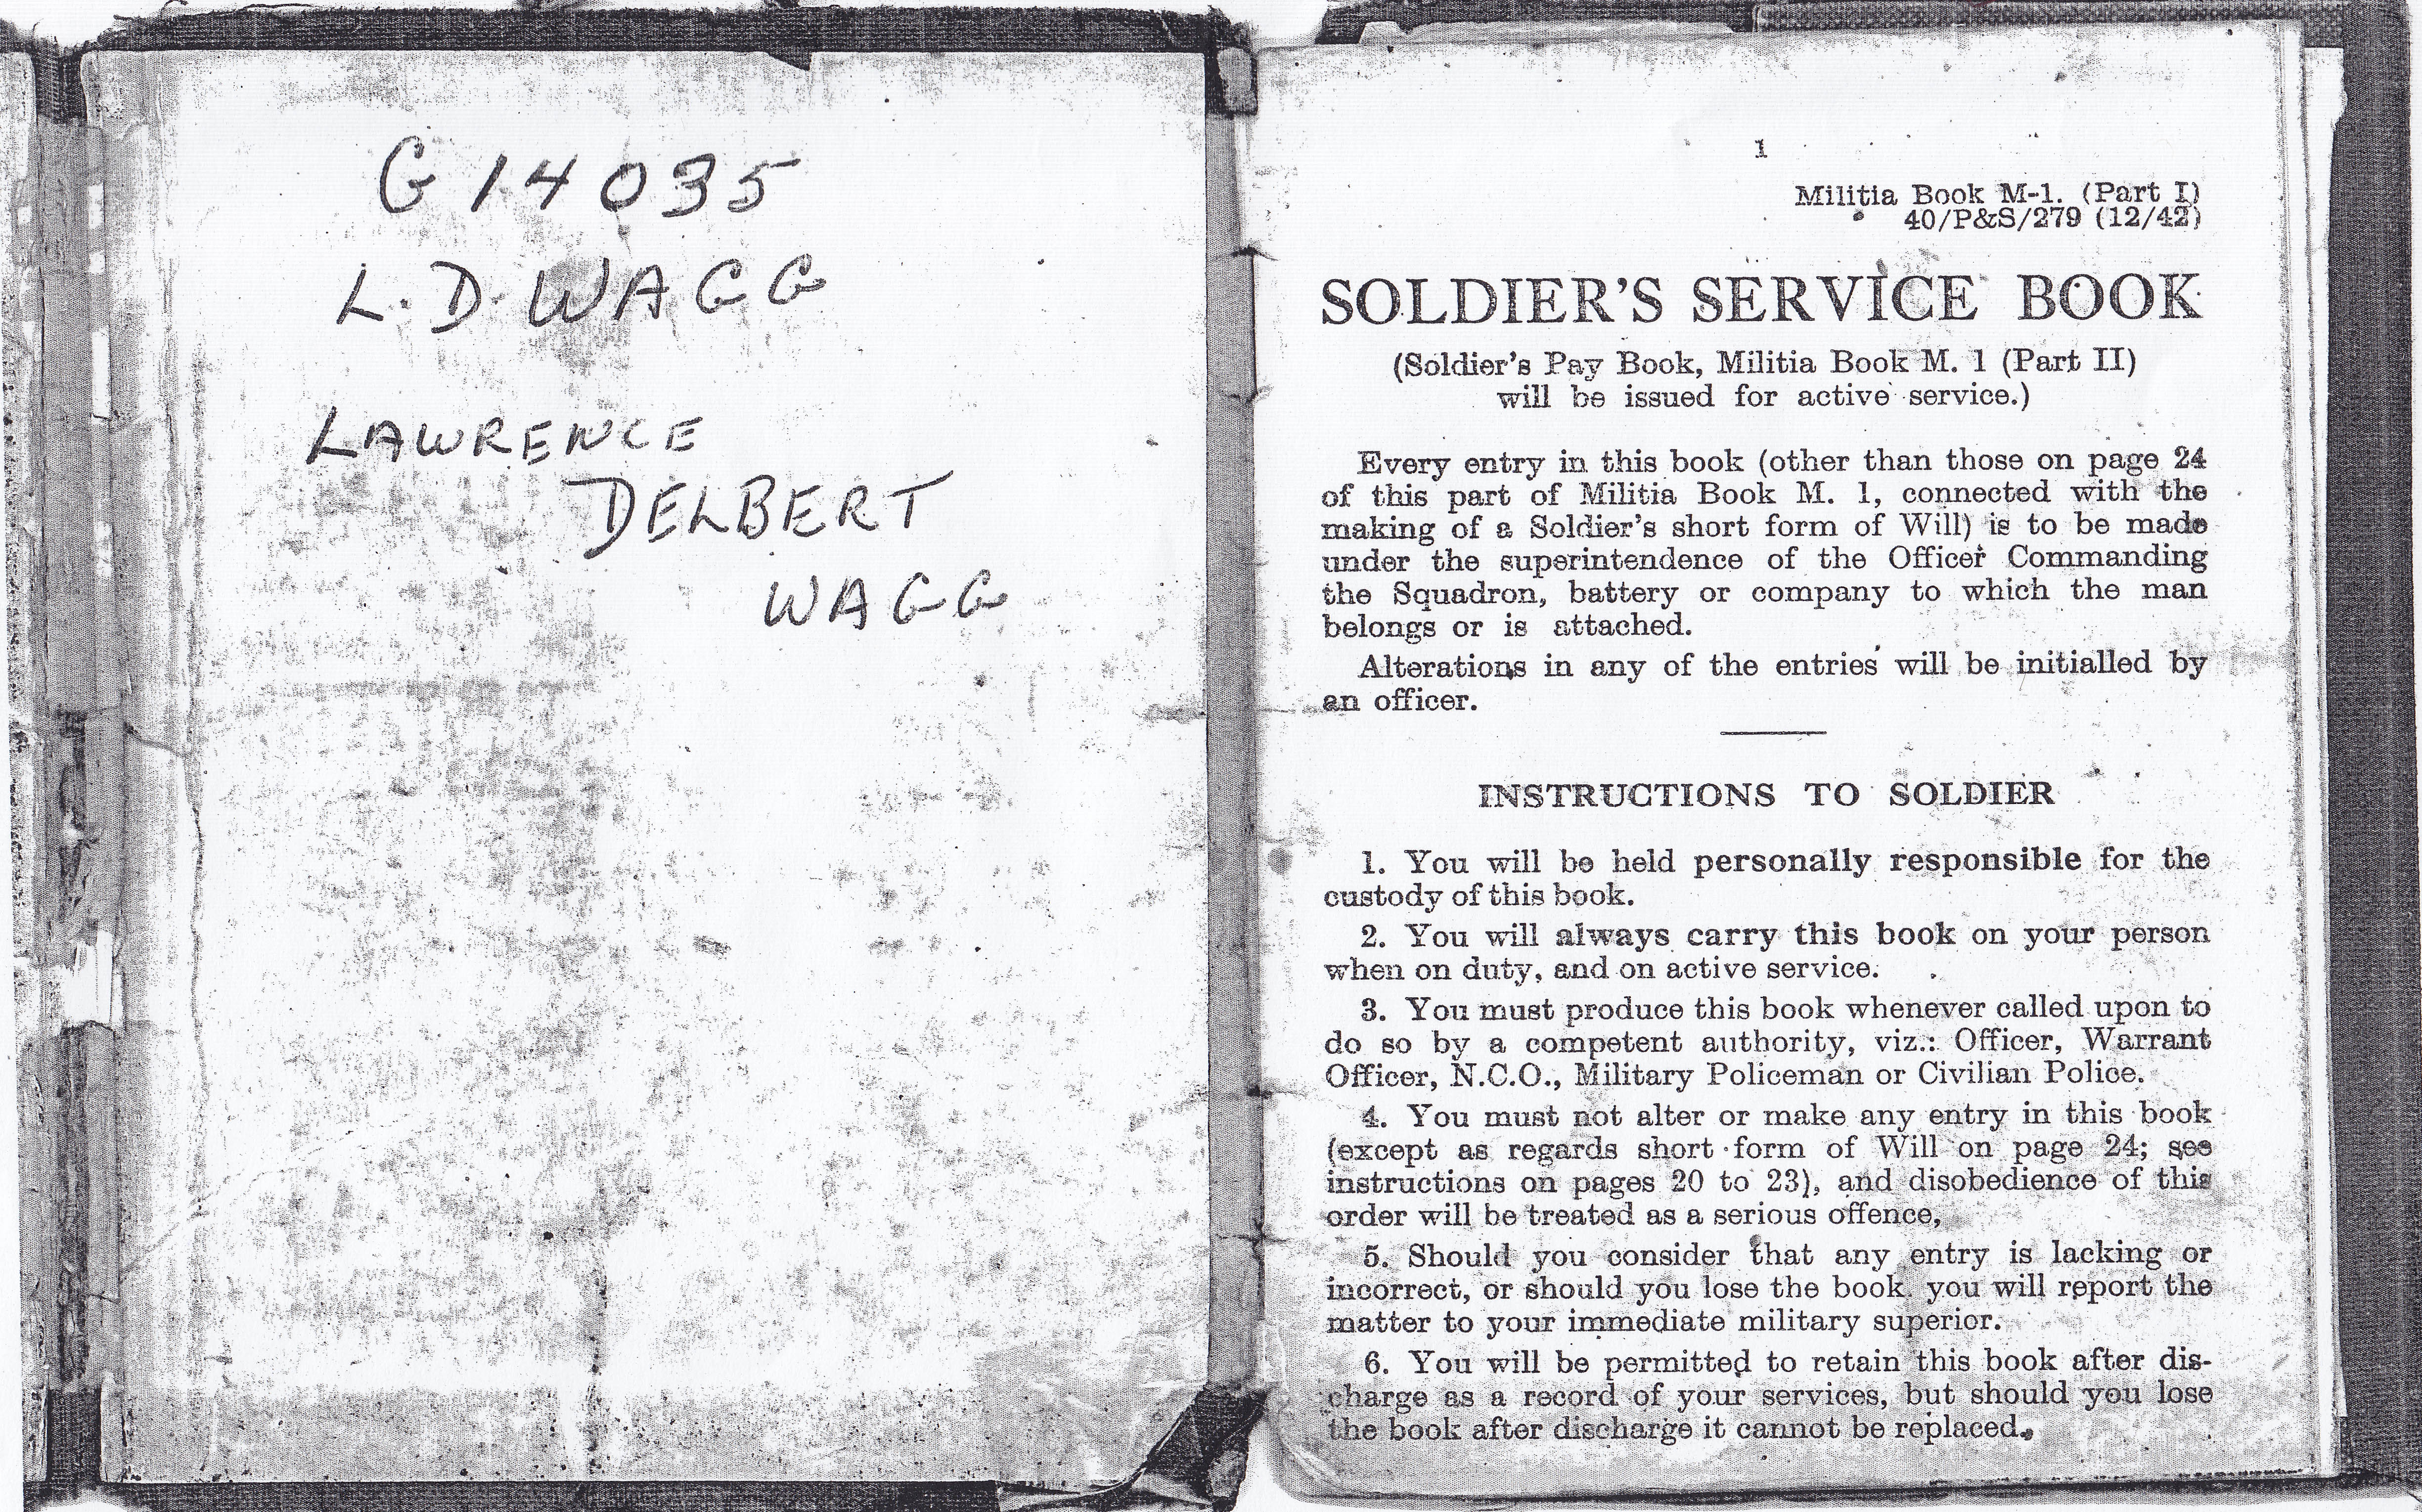 G 14035
L. D. WAGG
LAWRENCE
DELBERT
WAGG
1
Militia Book M-1. (Part I)
40/P&S/279 (12/42)
SOLDIER'S SERVICE BOOK
(Soldier's Pay Book, Militia Book M. 1 (Part II)
will be issued for active service.)
Every entry in this book (other than those on page 24
of this part of Militia Book M. 1, connected with the
making of a Soldier's short form of Will) is to be made
under the superintendence of the Officer Commanding
the Squadron, battery or company to which the man
belongs or is attached.
Alterations in any of the entries will be initialled by
an officer.
INSTRUCTIONS TO SOLDIER
1. You will be held personally responsible for the
custody of this book.
2. You will always carry this book on your person
when on duty, and on active service.
3. You must produce this book whenever called upon to
do so by a competent authority, viz.: Officer, Warrant
Officer, N.C.O., Military Policeman or Civilian Police.
4. You must not alter or make any entry in this book
(except as regards short form of Will on page 24; see
instructions on pages 20 to 23), and disobedience of this
order will be treated as a serious offence,
5. Should you consider that any entry is lacking or
incorrect, or should you lose the book, you will report the
matter to your immediate military superior.
6. You will be permitted to retain this book after dis-
charge as a record of your services, but should you lose
the book after discharge it cannot be replaced.